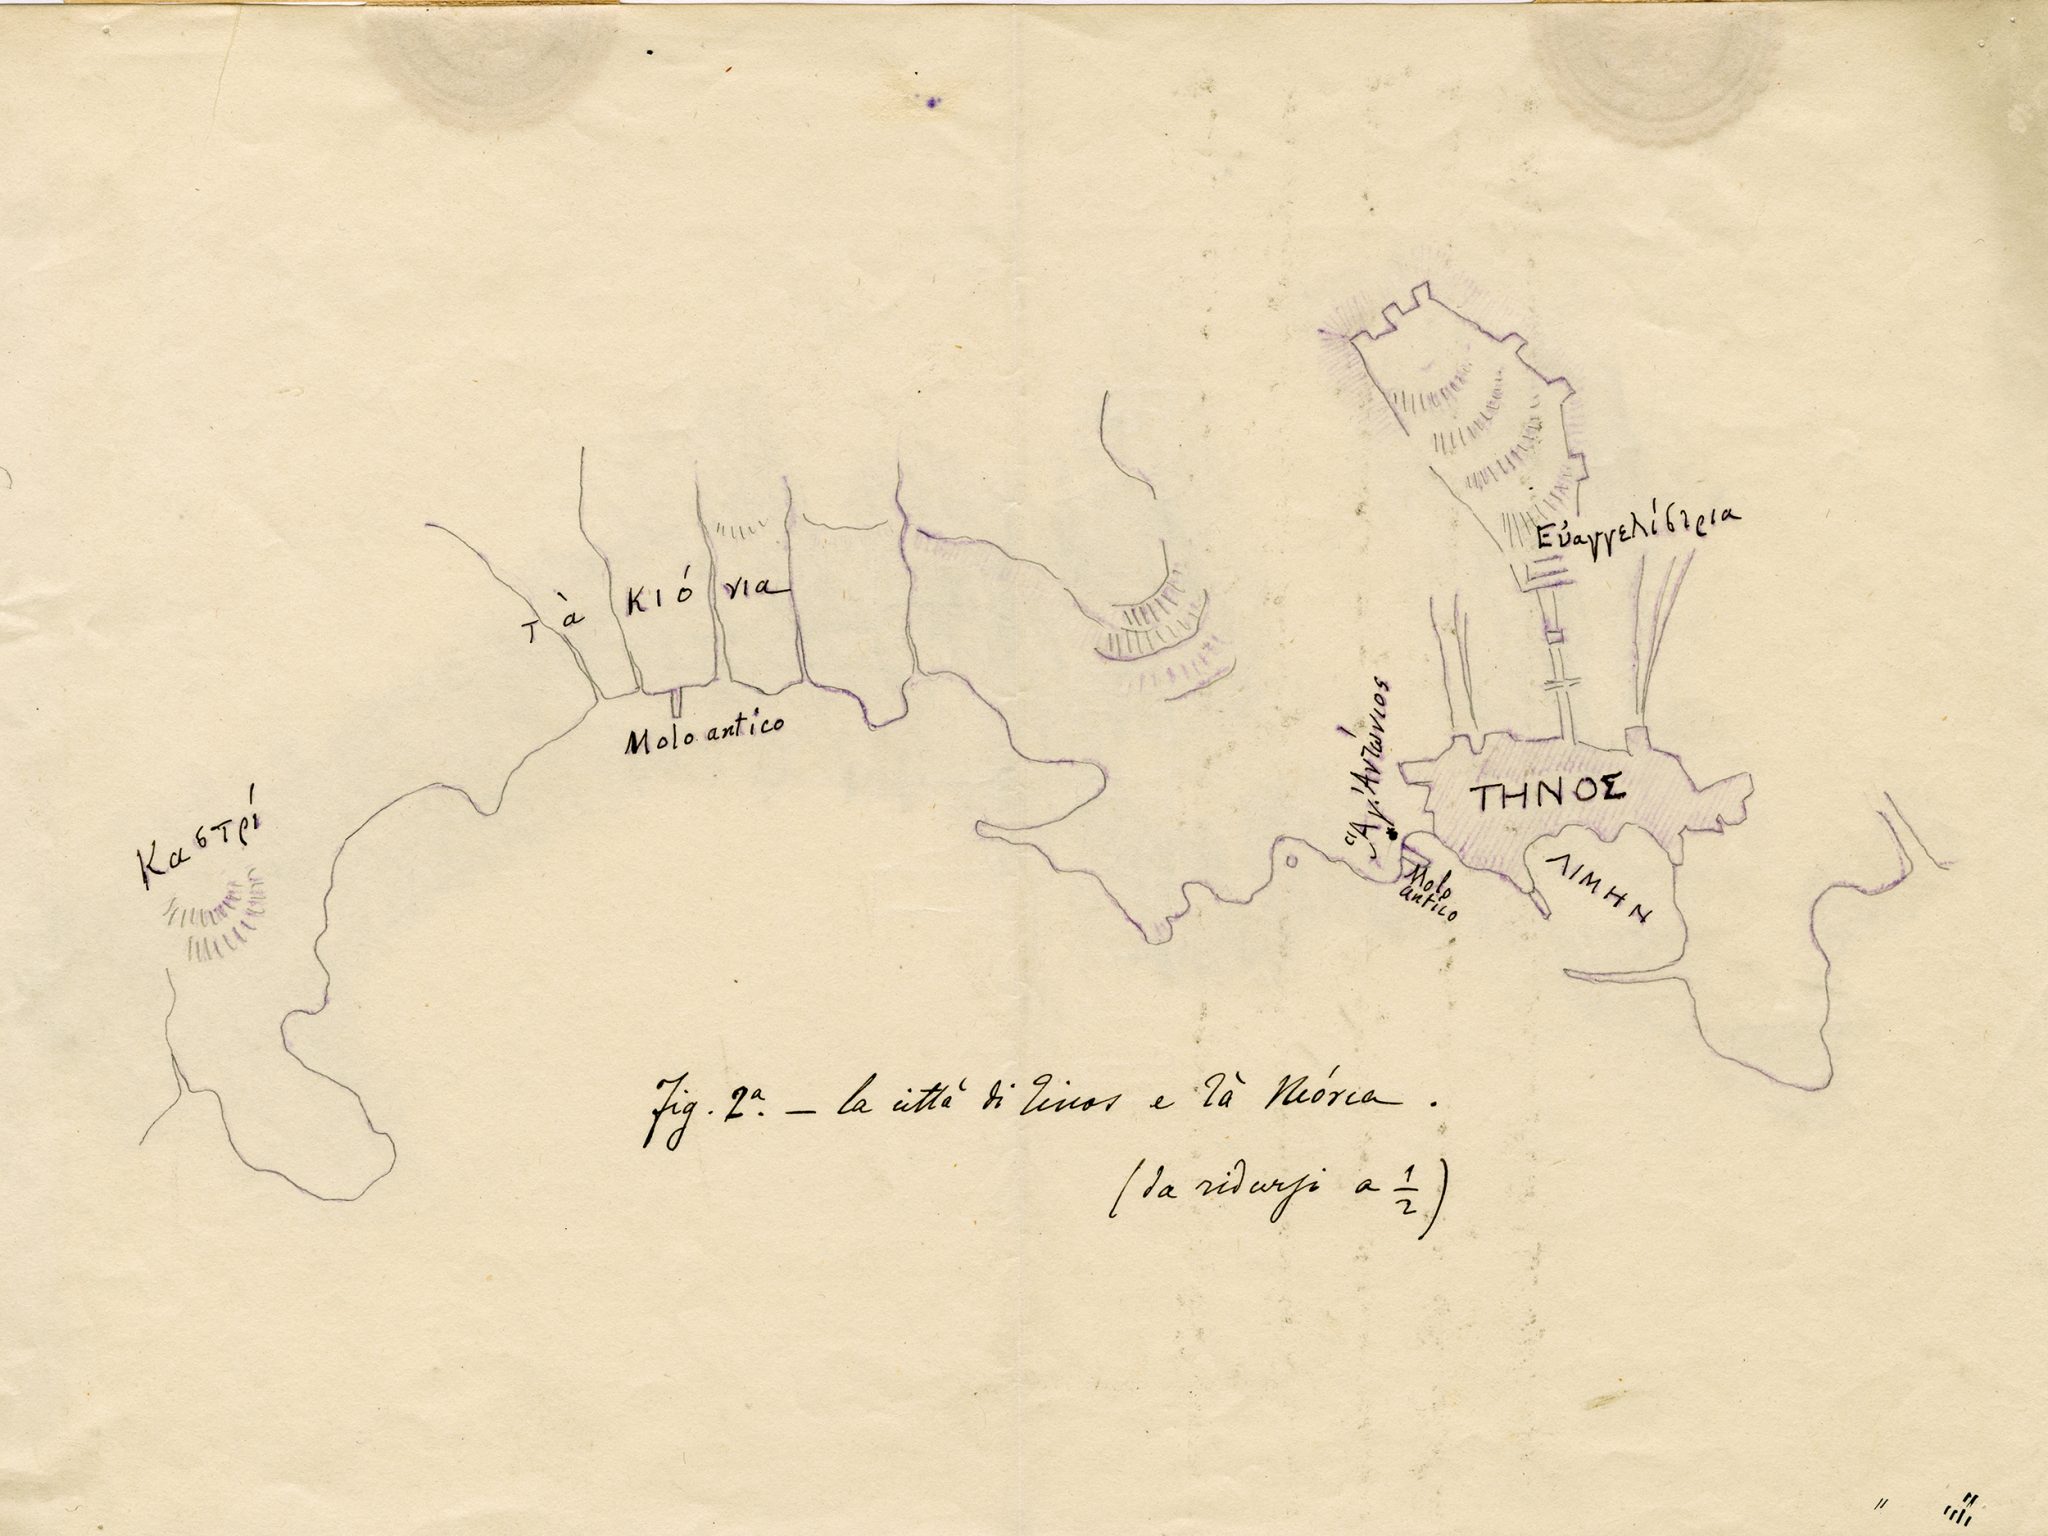 Εὐαγγελίστρια
τὰ Κιόνια
Molo antico
Ἅγ. Ἀντώνιος
ΤΗΝΟΣ
Καστρί
ΛΙΜΗΝ
Molo
antico
Fig. 2ª. — La città di Tinos e τὰ Κιόνια.
(da ridursi a 1/2)